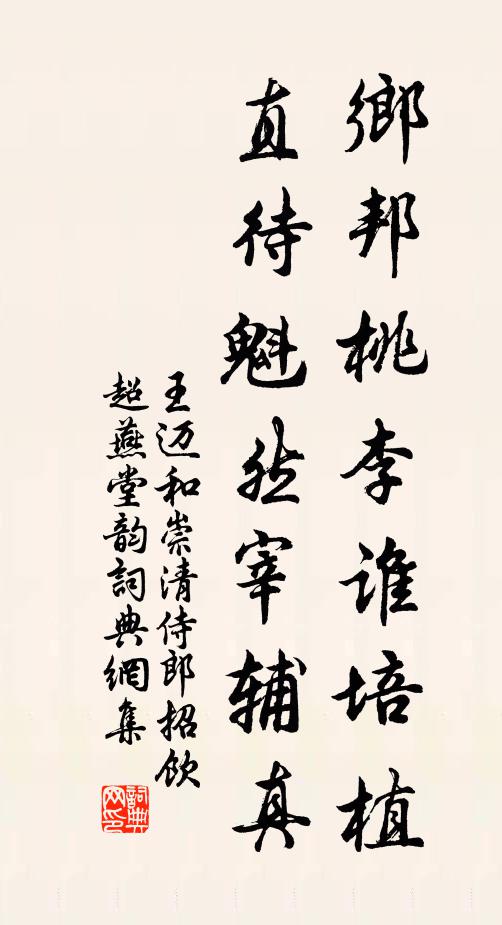 鄉邦桃李谁培植
直待魁然宰辅真
王迈和崇清侍郎招饮
超燕堂韵詞典網集
詞典
网印